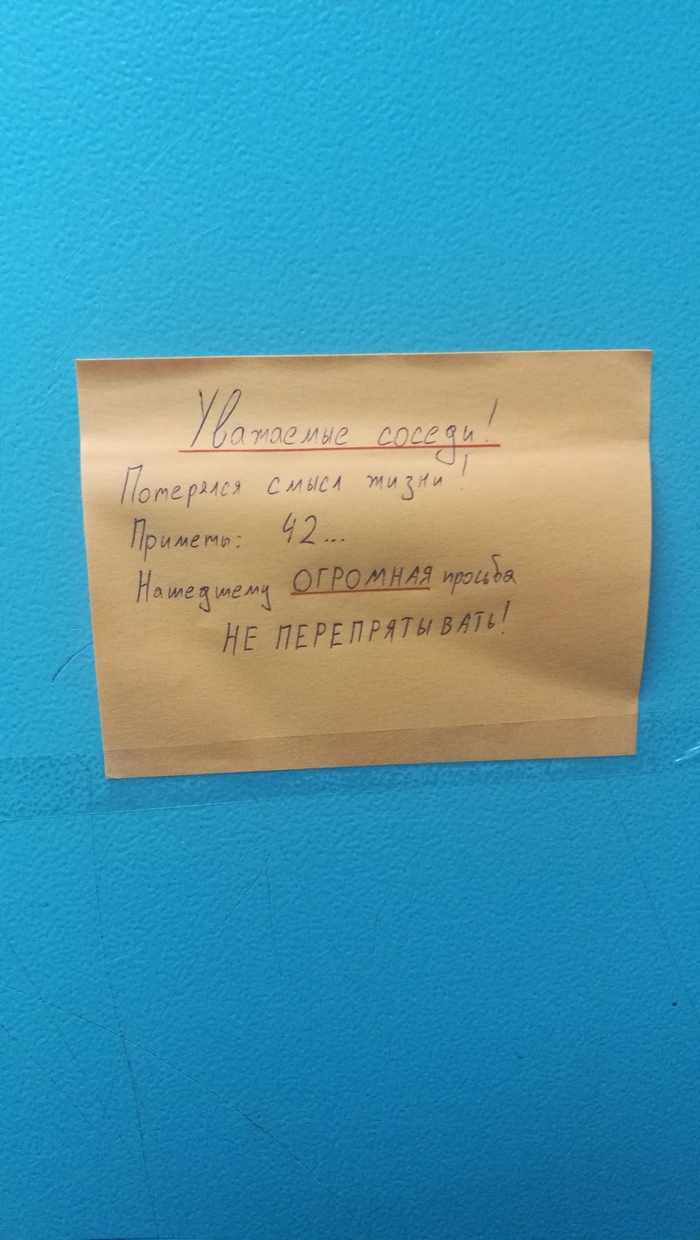 Уважаемые соседи!
Потерялся смысл жизни!
Приметы: 42...
Нашедшему ОГРОМНАЯ просьба
НЕ ПЕРЕПРЯТЫВАТЬ!